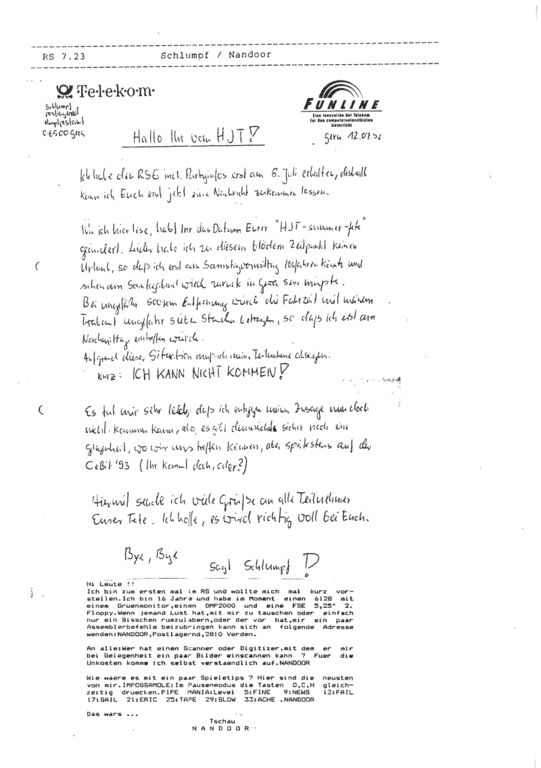 RS 7.23 Schlumpf / Nandoor
Telekom
FUNLINE
Eine Innovation der Telekom
für den computerunterstützten
Unterricht
Schlumpf
postlagernd
Hauptpostamt
O-6500 Gera
Gera 12.07.92
Hallo Ihr vom HJT!
Ich habe den RS6 incl. Partyinfos erst am 8. Juli erhalten, deshalb
kann ich Euch erst jetzt eine Nachricht zukommen lassen.
Wie ich hier lese, habt Ihr das Datum Eurer "HJT-summer-fete"
geändert. Leider habe ich zu diesem blöden Zeitpunkt keinen
Urlaub, so daß ich erst am Samstagvormittag losfahren könnte und
schon am Sonntagabend wieder zurück in Gera sein müsste.
Bei ungefähr 500km Entfernung würde die Fahrzeit mit meinem
Trabant ungefähr sieben Stunden betragen, so daß ich erst am
Nachmittag eintreffen würde.
Aufgrund dieser Situation muß ich meine Teilnahme absagen.
kurz: ICH KANN NICHT KOMMEN!
Es tut mir sehr leid, daß ich entgegen meiner Zusage nun doch
nicht kommen kann, aber es gibt demnächst sicher noch eine
Gelegenheit, wo wir uns treffen können, aber spätestens auf der
CeBit '93 (Ihr kommt doch, oder?)
Hiermit sende ich viele Grüße an alle Teilnehmer
Eurer Fete. Ich hoffe, es wird richtig voll bei Euch.
Bye, Bye
sagt Schlumpf!
Hi Leute !!
Ich bin zum ersten mal im RS und wollte mich mal kurz vor-
stellen.Ich bin 16 Jahre und habe im Moment einen 6128 mit
einem Gruenmonitor,einen DMP2000 und eine FSE 5,25" 2.
Floppy.Wenn jemand Lust hat,mit mir zu tauschen oder einfach
nur ein Bisschen rumzulabern,oder der vor hat,mir ein paar
Assemblerbefehle beizubringen kann sich an folgende Adresse
wenden:NANDOOR,Postlagernd,2810 Verden.
An alle:Wer hat einen Scanner oder Digitizer,mit dem er mir
bei Gelegenheit ein paar Bilder einscannen kann ? Fuer die
Unkosten komme ich selbst verstaendlich auf.NANDOOR
Wie waere es mit ein paar Spieletips ? Hier sind die neusten
von mir.IMPOSSAMOLE:Im Pausenmodus die Tasten O,C,H gleich-
zeitig druecken.PIPE MANIA:Level 5:FINE 9:NEWS 12:FAIL
17:SAIL 21:ERIC 25:TAPE 29:SLOW 33:ACHE .NANDOOR
Das wars ...
Tschau
N A N D O O R